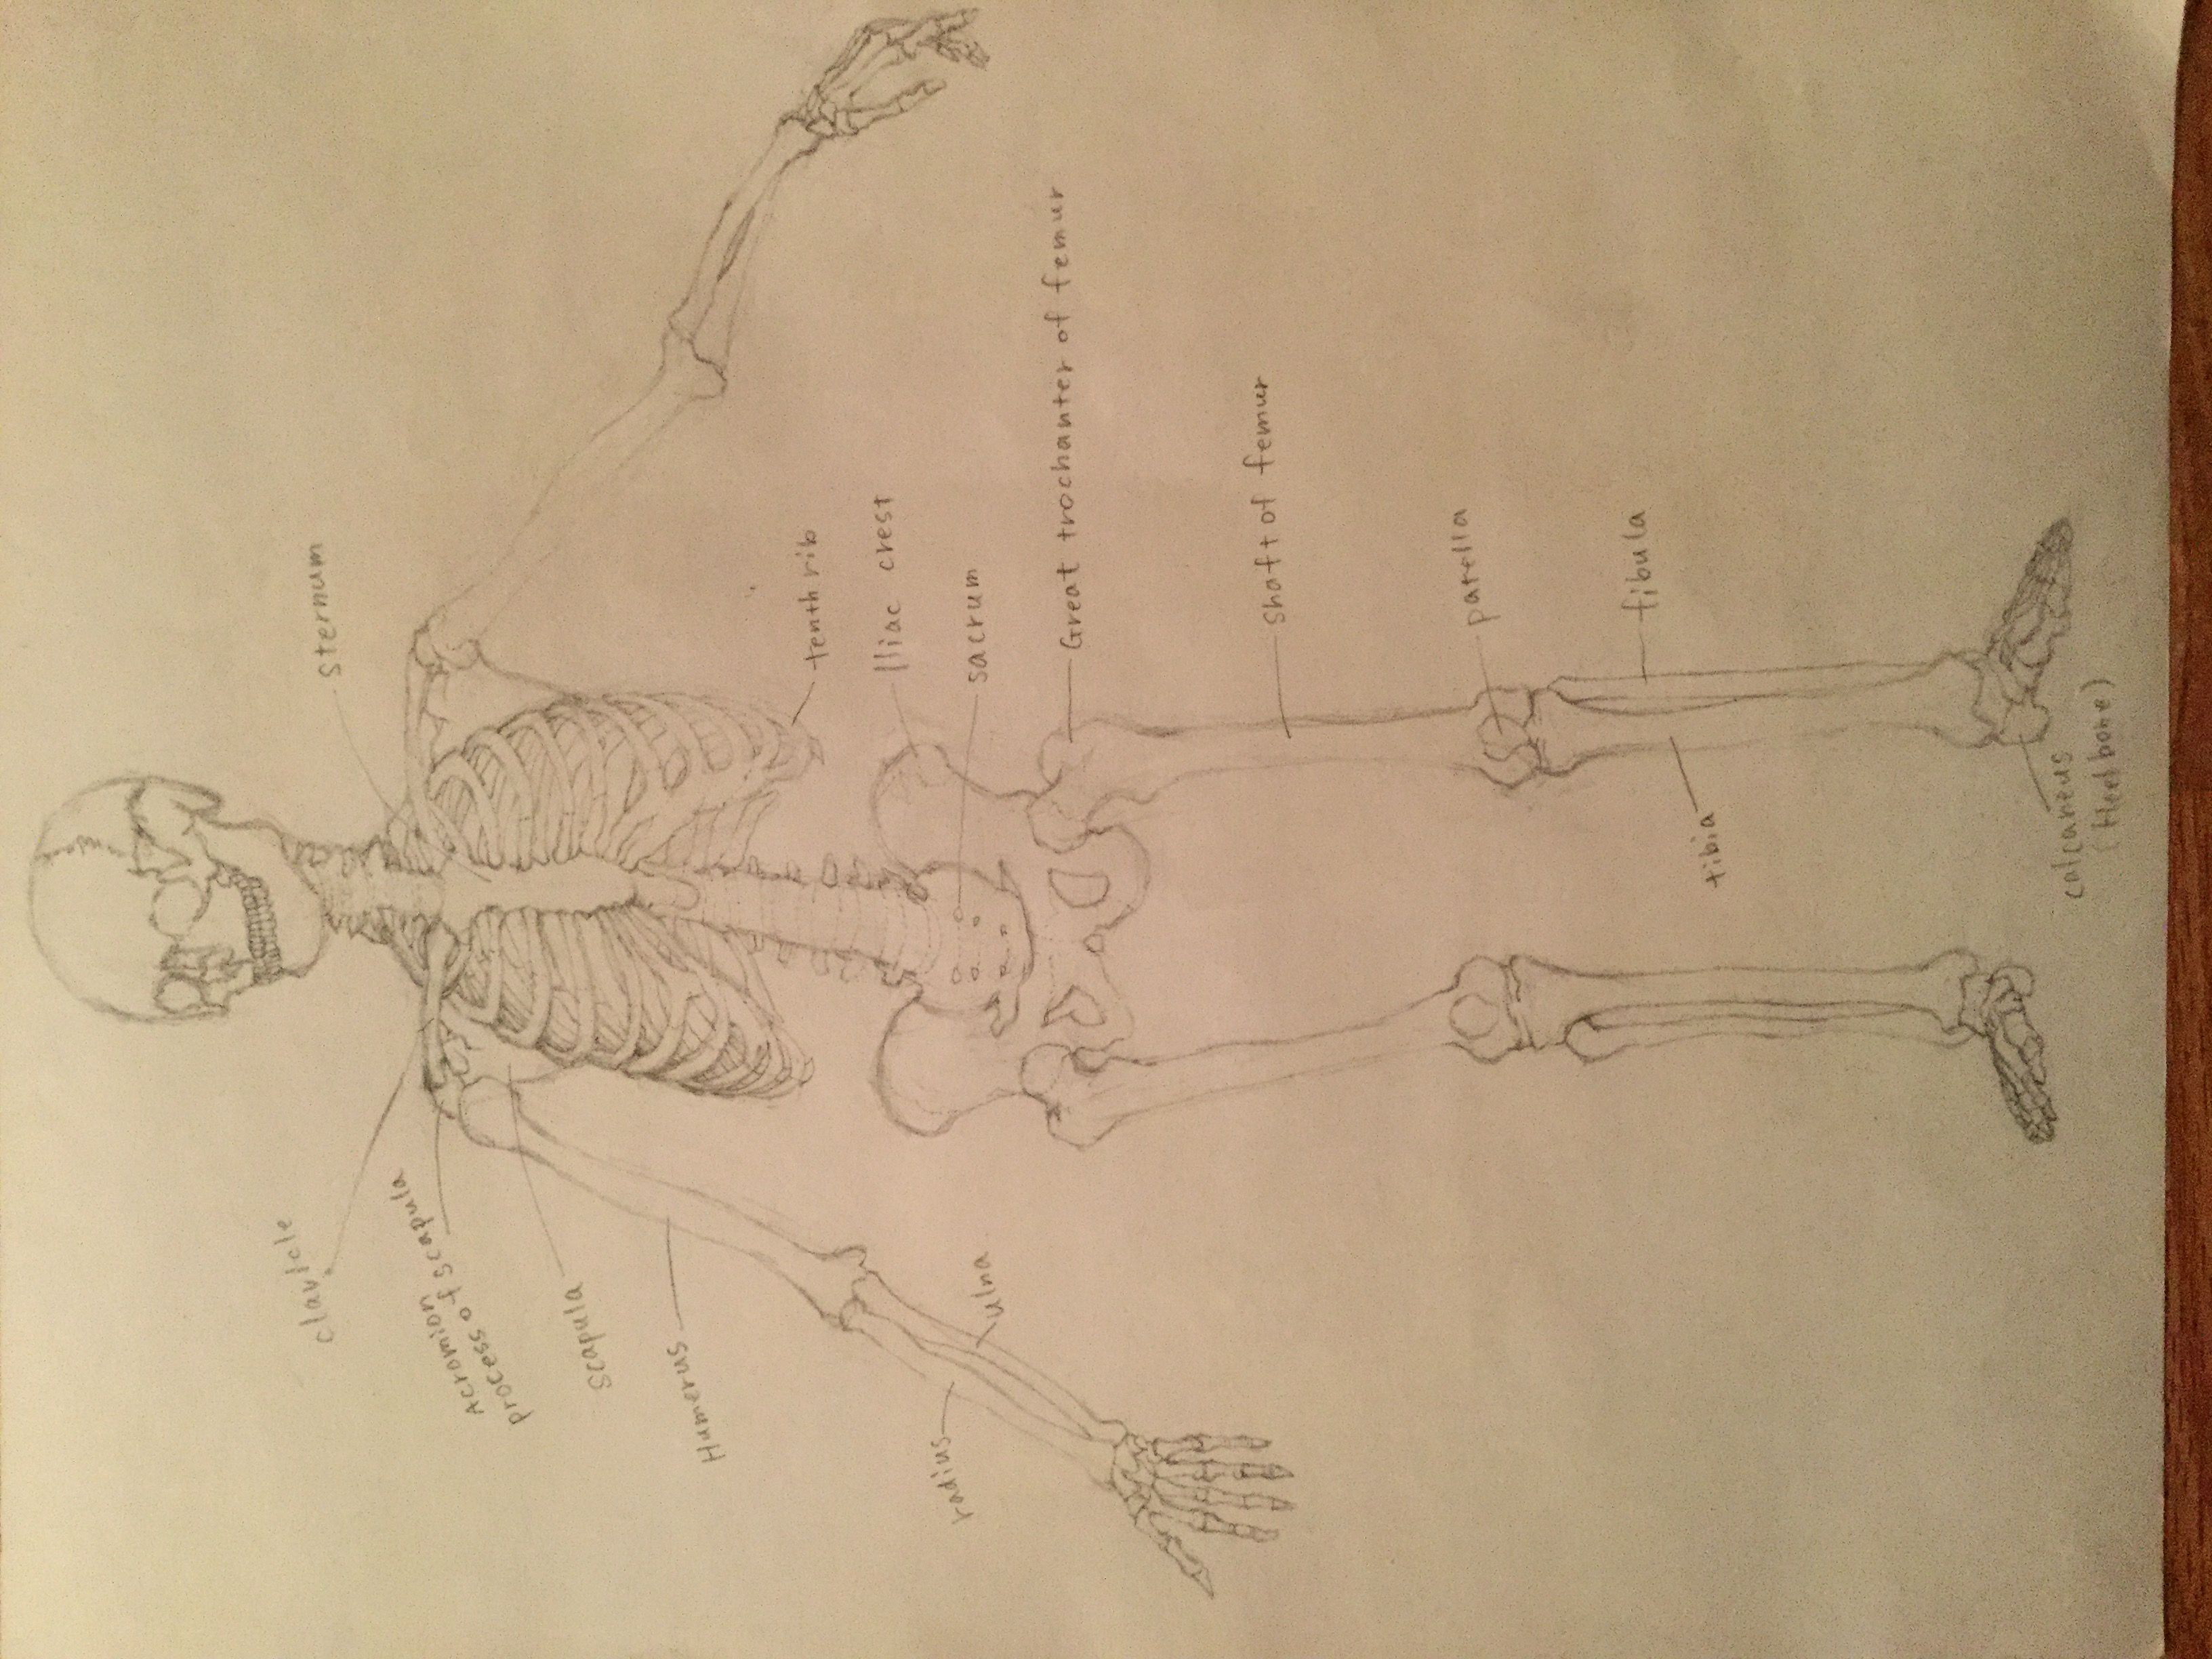 clavicle
sternum
Acromion
process of scapula
scapula
Humerus
tenth rib
Iliac crest
radius
ulna
sacrum
Great trochanter of femur
shaft of femur
patella
fibula
tibia
calcaneus
(Heel bone)